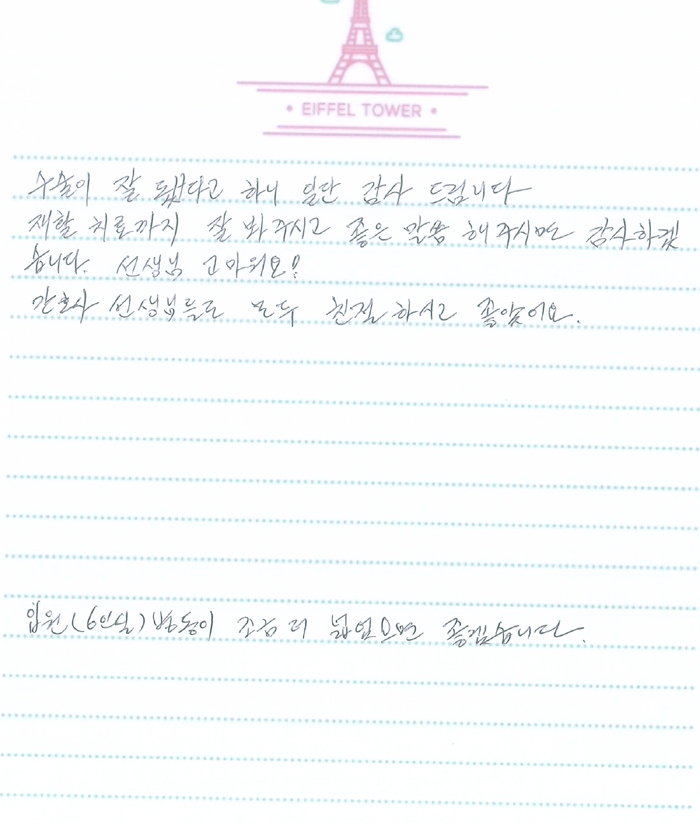 • EIFFEL TOWER •
수술이 잘 됐다고 하니 일단 감사 드립니다
재활 치료까지 잘 봐주시고 좋은 말씀 해주시면 감사하겠
습니다. 선생님 고마워요!
간호사 선생님들도 모두 친절하시고 좋았어요.
입원(6인실)병동이 조금 더 넓었으면 좋겠습니다.